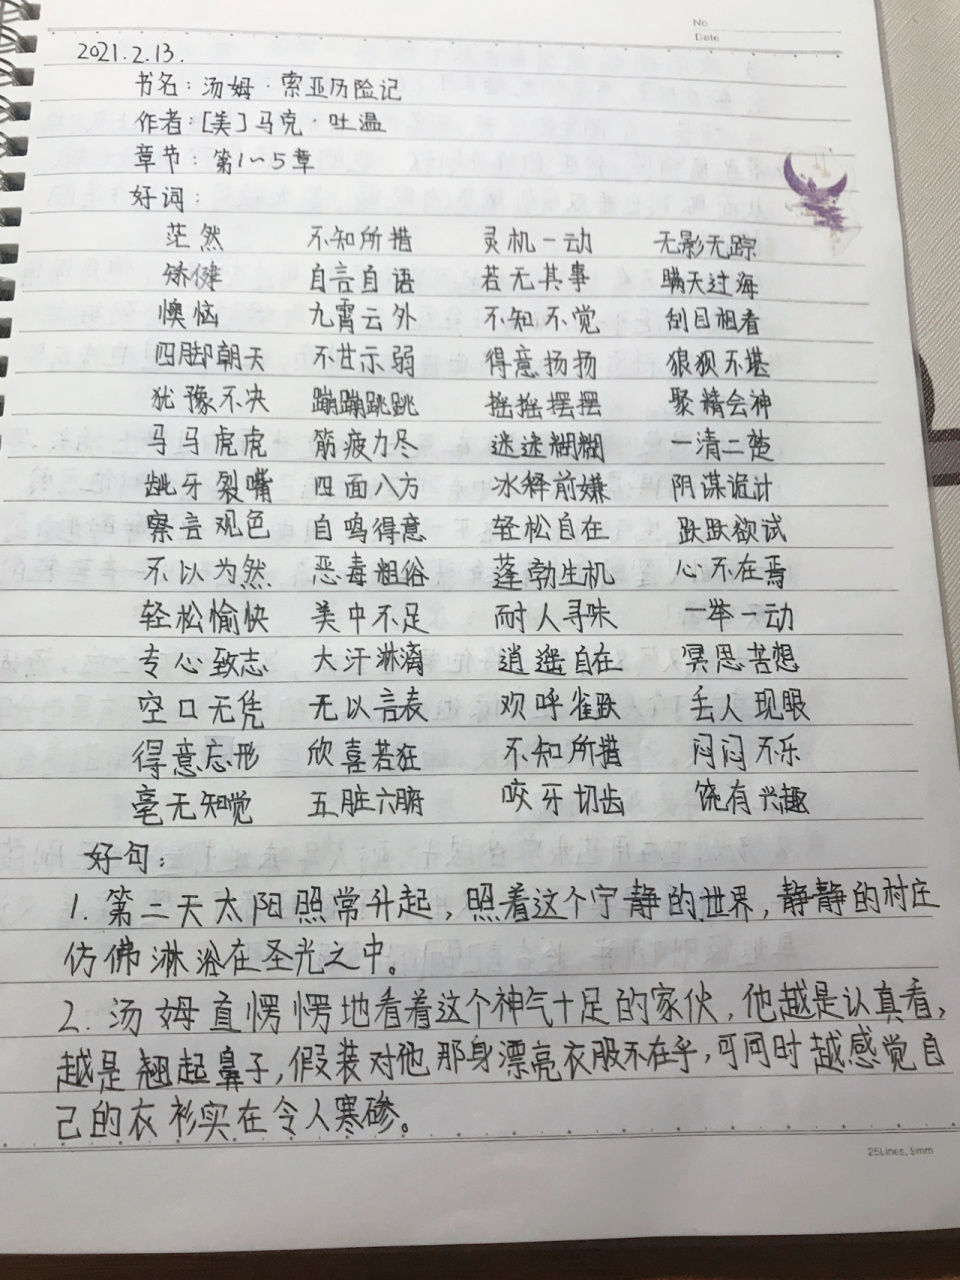 No
Date
2021.2.13.
书名：汤姆·索亚历险记
作者：[美]马克·吐温
章节：第1～5章
好词：
茫然 不知所措 灵机一动 无影无踪
矫健 自言自语 若无其事 瞒天过海
懊恼 九霄云外 不知不觉 刮目相看
四脚朝天 不甘示弱 得意扬扬 狼狈不堪
犹豫不决 蹦蹦跳跳 摇摇摆摆 聚精会神
马马虎虎 筋疲力尽 迷迷糊糊 一清二楚
龇牙裂嘴 四面八方 冰释前嫌 阴谋诡计
察言观色 自鸣得意 轻松自在 跃跃欲试
不以为然 恶毒粗俗 蓬勃生机 心不在焉
轻松愉快 美中不足 耐人寻味 一举一动
专心致志 大汗淋漓 逍遥自在 冥思苦想
空口无凭 无以言表 欢呼雀跃 丢人现眼
得意忘形 欣喜若狂 不知所措 闷闷不乐
毫无知觉 五脏六腑 咬牙切齿 饶有兴趣
好句：
1. 第二天太阳照常升起，照着这个宁静的世界，静静的村庄
仿佛淋浴在圣光之中。
2. 汤姆直愣愣地看着这个神气十足的家伙，他越是认真看，
越是翘起鼻子，假装对他那身漂亮衣服不在乎，可同时越感觉自
己的衣衫实在令人寒碜。
25Lines, 9mm